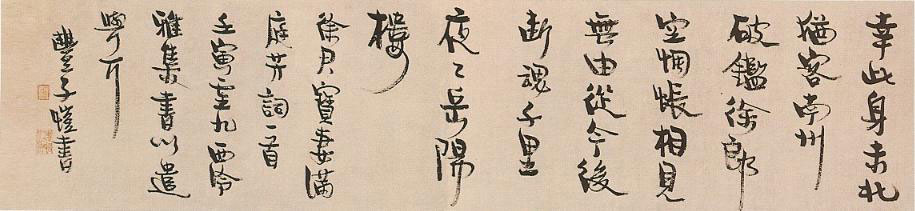 幸此身未北
猶客南州
破鑑徐郎
空惆悵相見
無由從今後
斷魂千里
夜々岳陽
樓
徐君寶妻滿
庭芳詞一首
壬寅重九西泠
雅集書以遣
興
豐子愷書